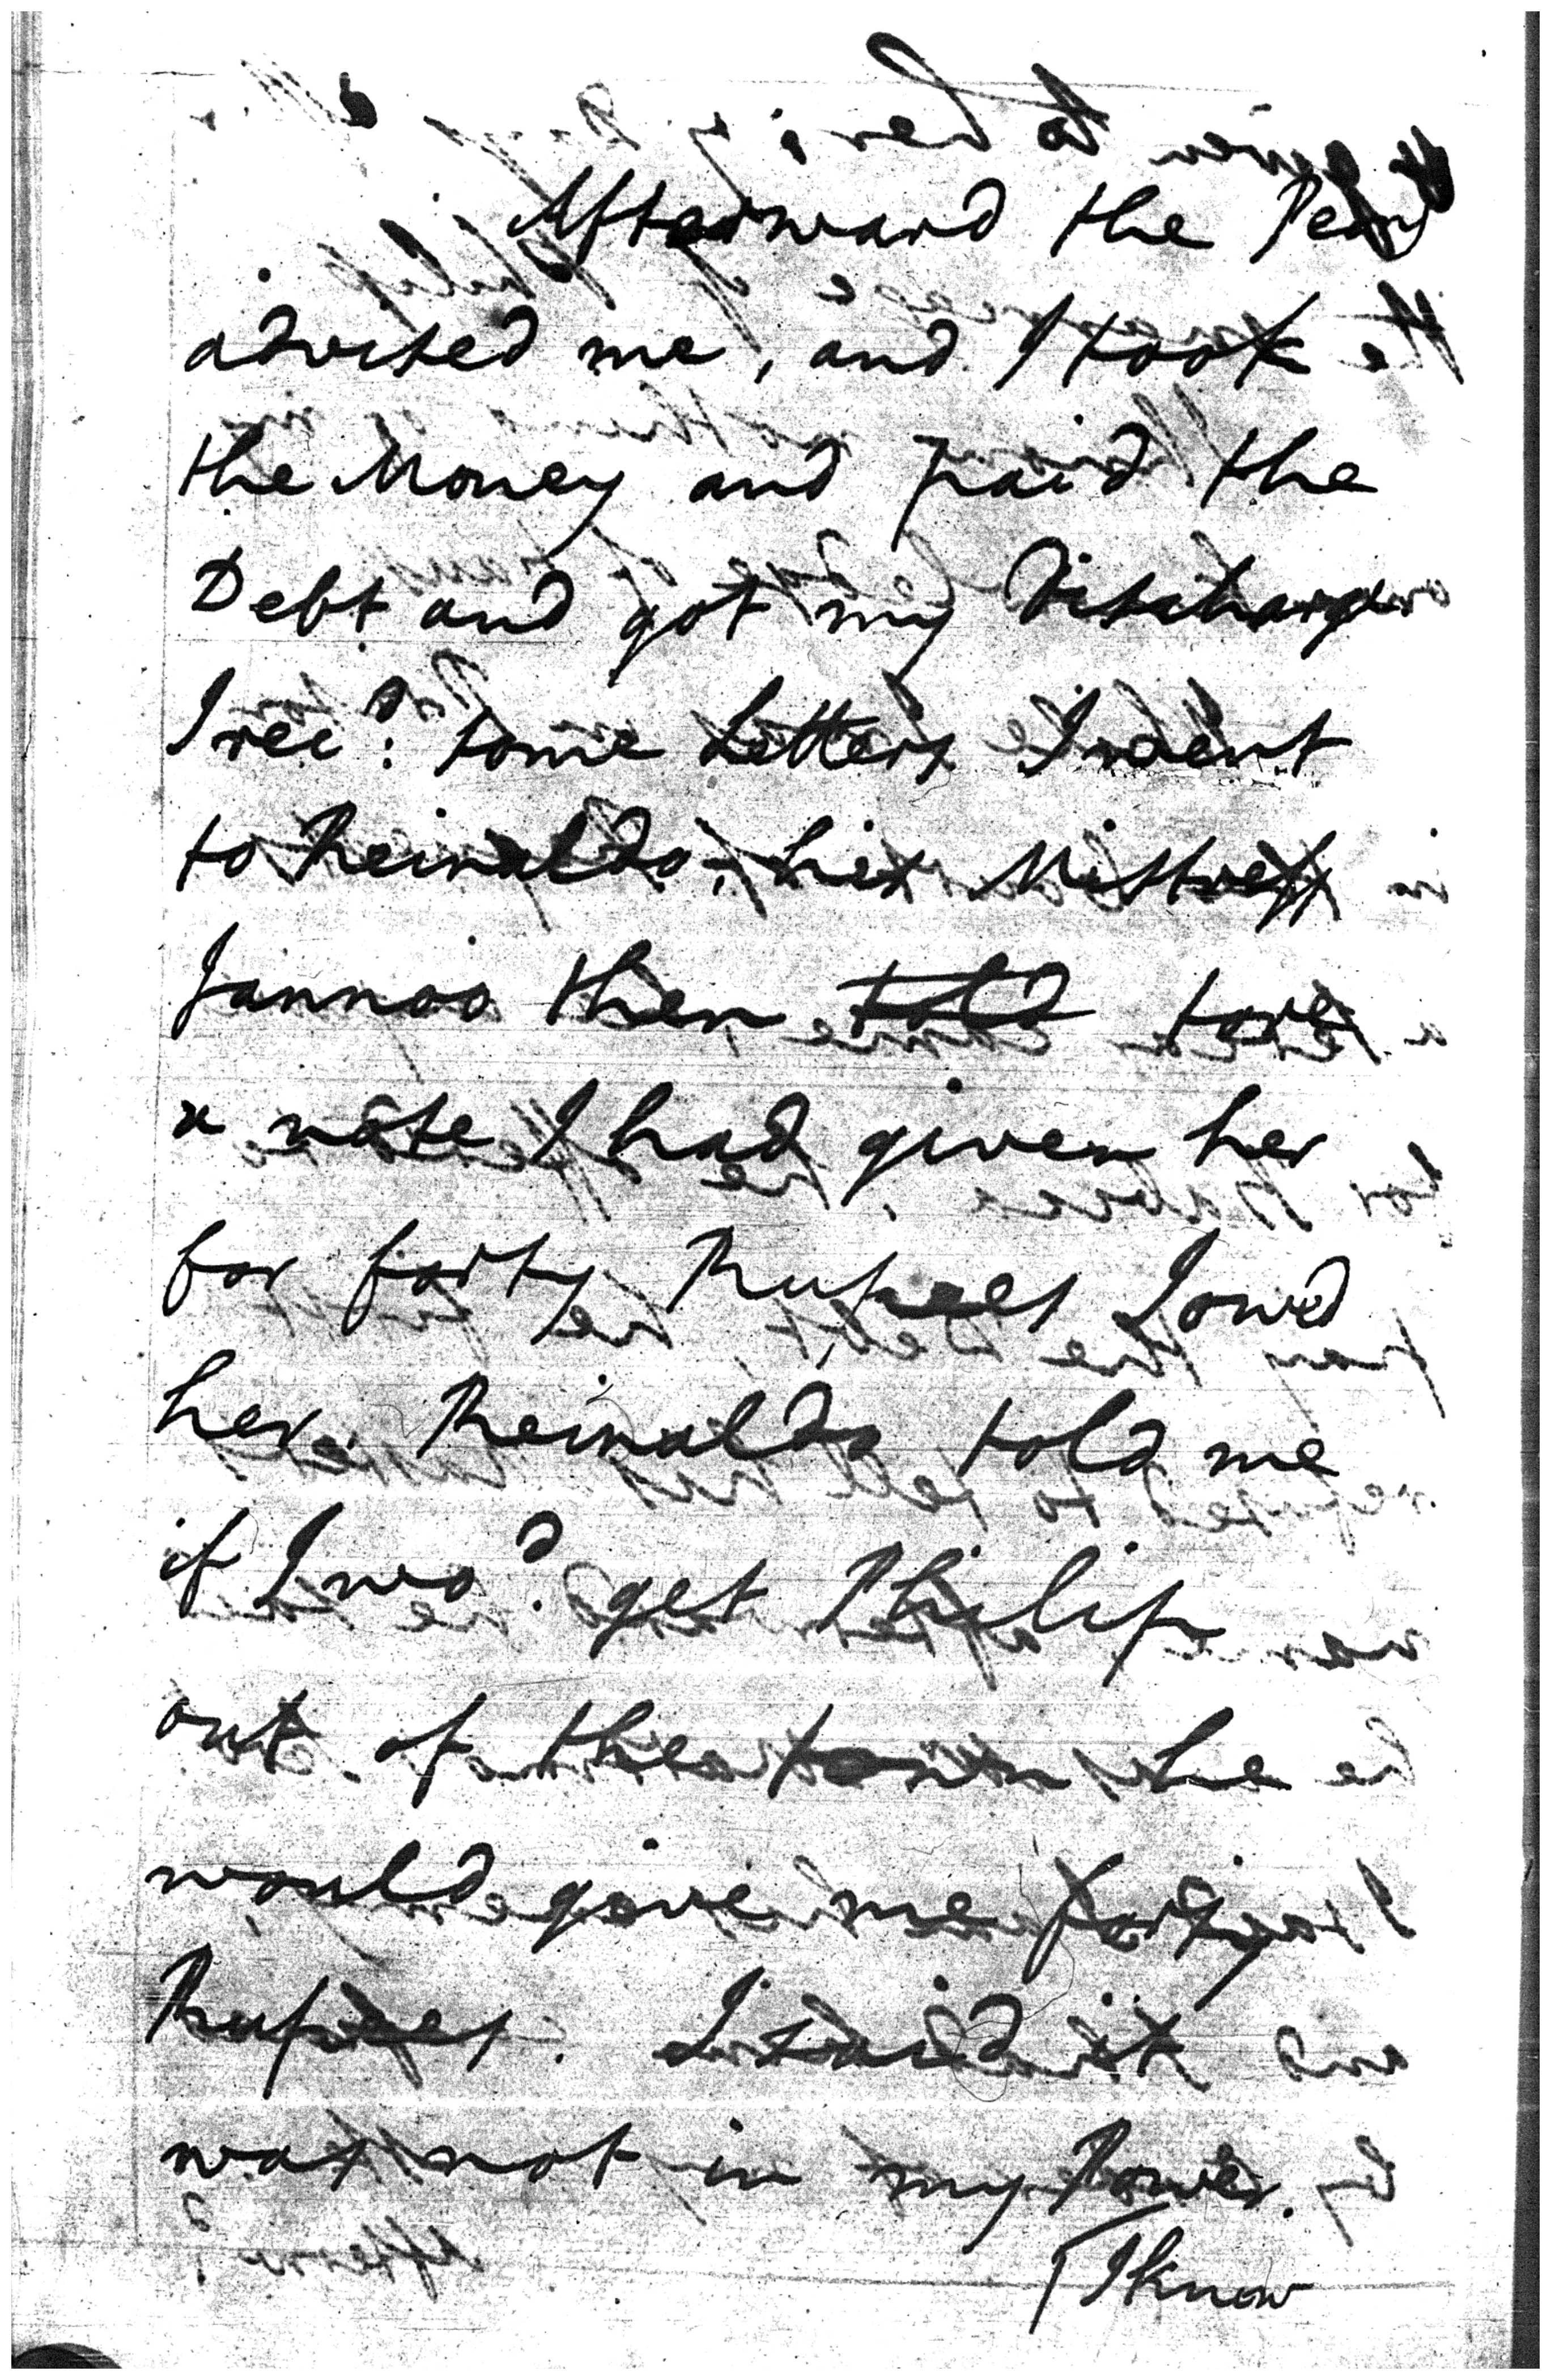 Afterward the Peon
advised me, and I took
the Money and paid the
Debt and got my Discharge
I rec^d. some Letters I went
to Reinaldo, his Mistress
Jannoo then told tore
a note I had given her
for forty Rupees I owed
her. Reinaldo told me
if I wo^d. get Philip
out of the town he
would give me forty
Rupees. I said it
was not in my Power.
I know